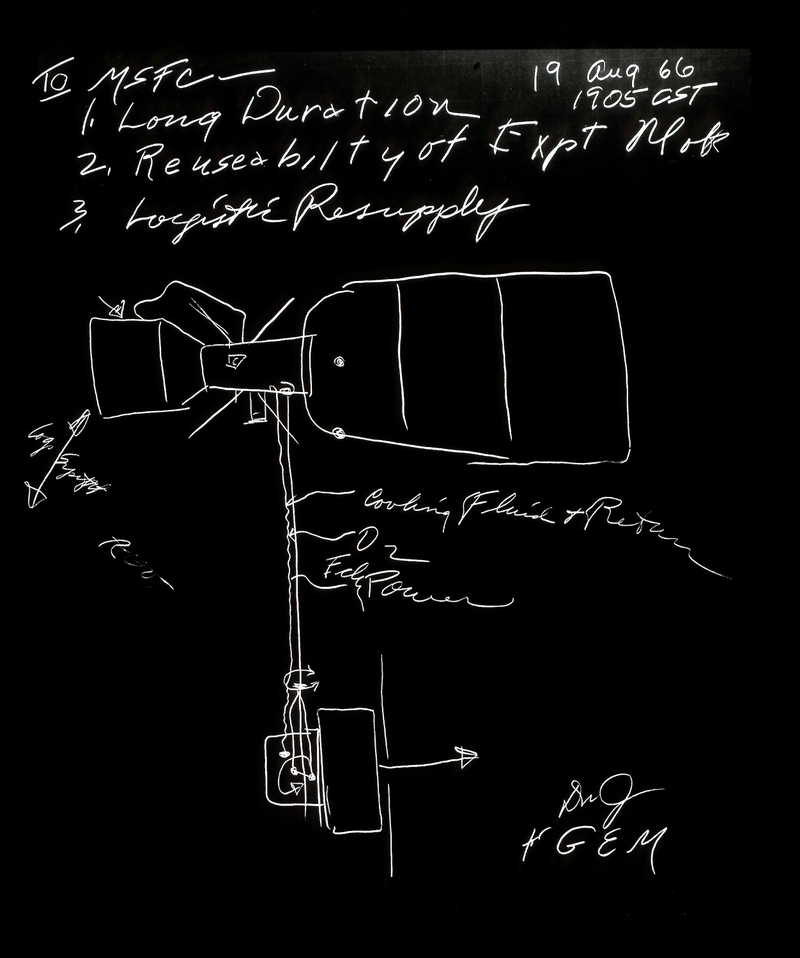 TO MSFC —
19 Aug 66
1905 CST
1. Long Duration
2. Reuseabilty of Expt
3. Logistic Resupply
Cooling Fluid + Return
O2
Power
GEM